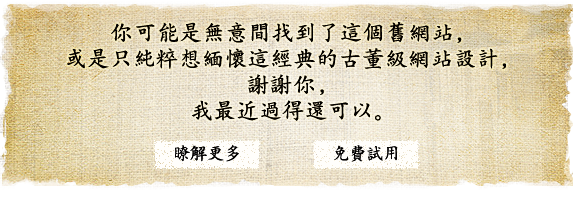 你可能是無意間找到了這個舊網站，
或是只純粹想緬懷這經典的古董級網站設計，
謝謝你，
我最近過得還可以。
瞭解更多 免費試用